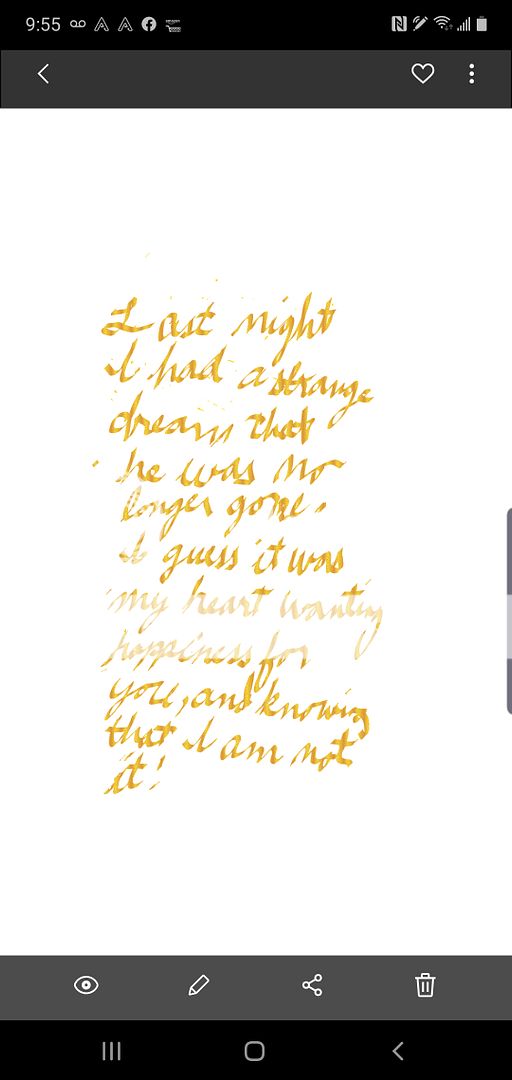 9:55
Last night
I had a strange
dream that
he was no
longer gone.
I guess it was
my heart wanting
happiness for
you, and knowing
that I am not
it!